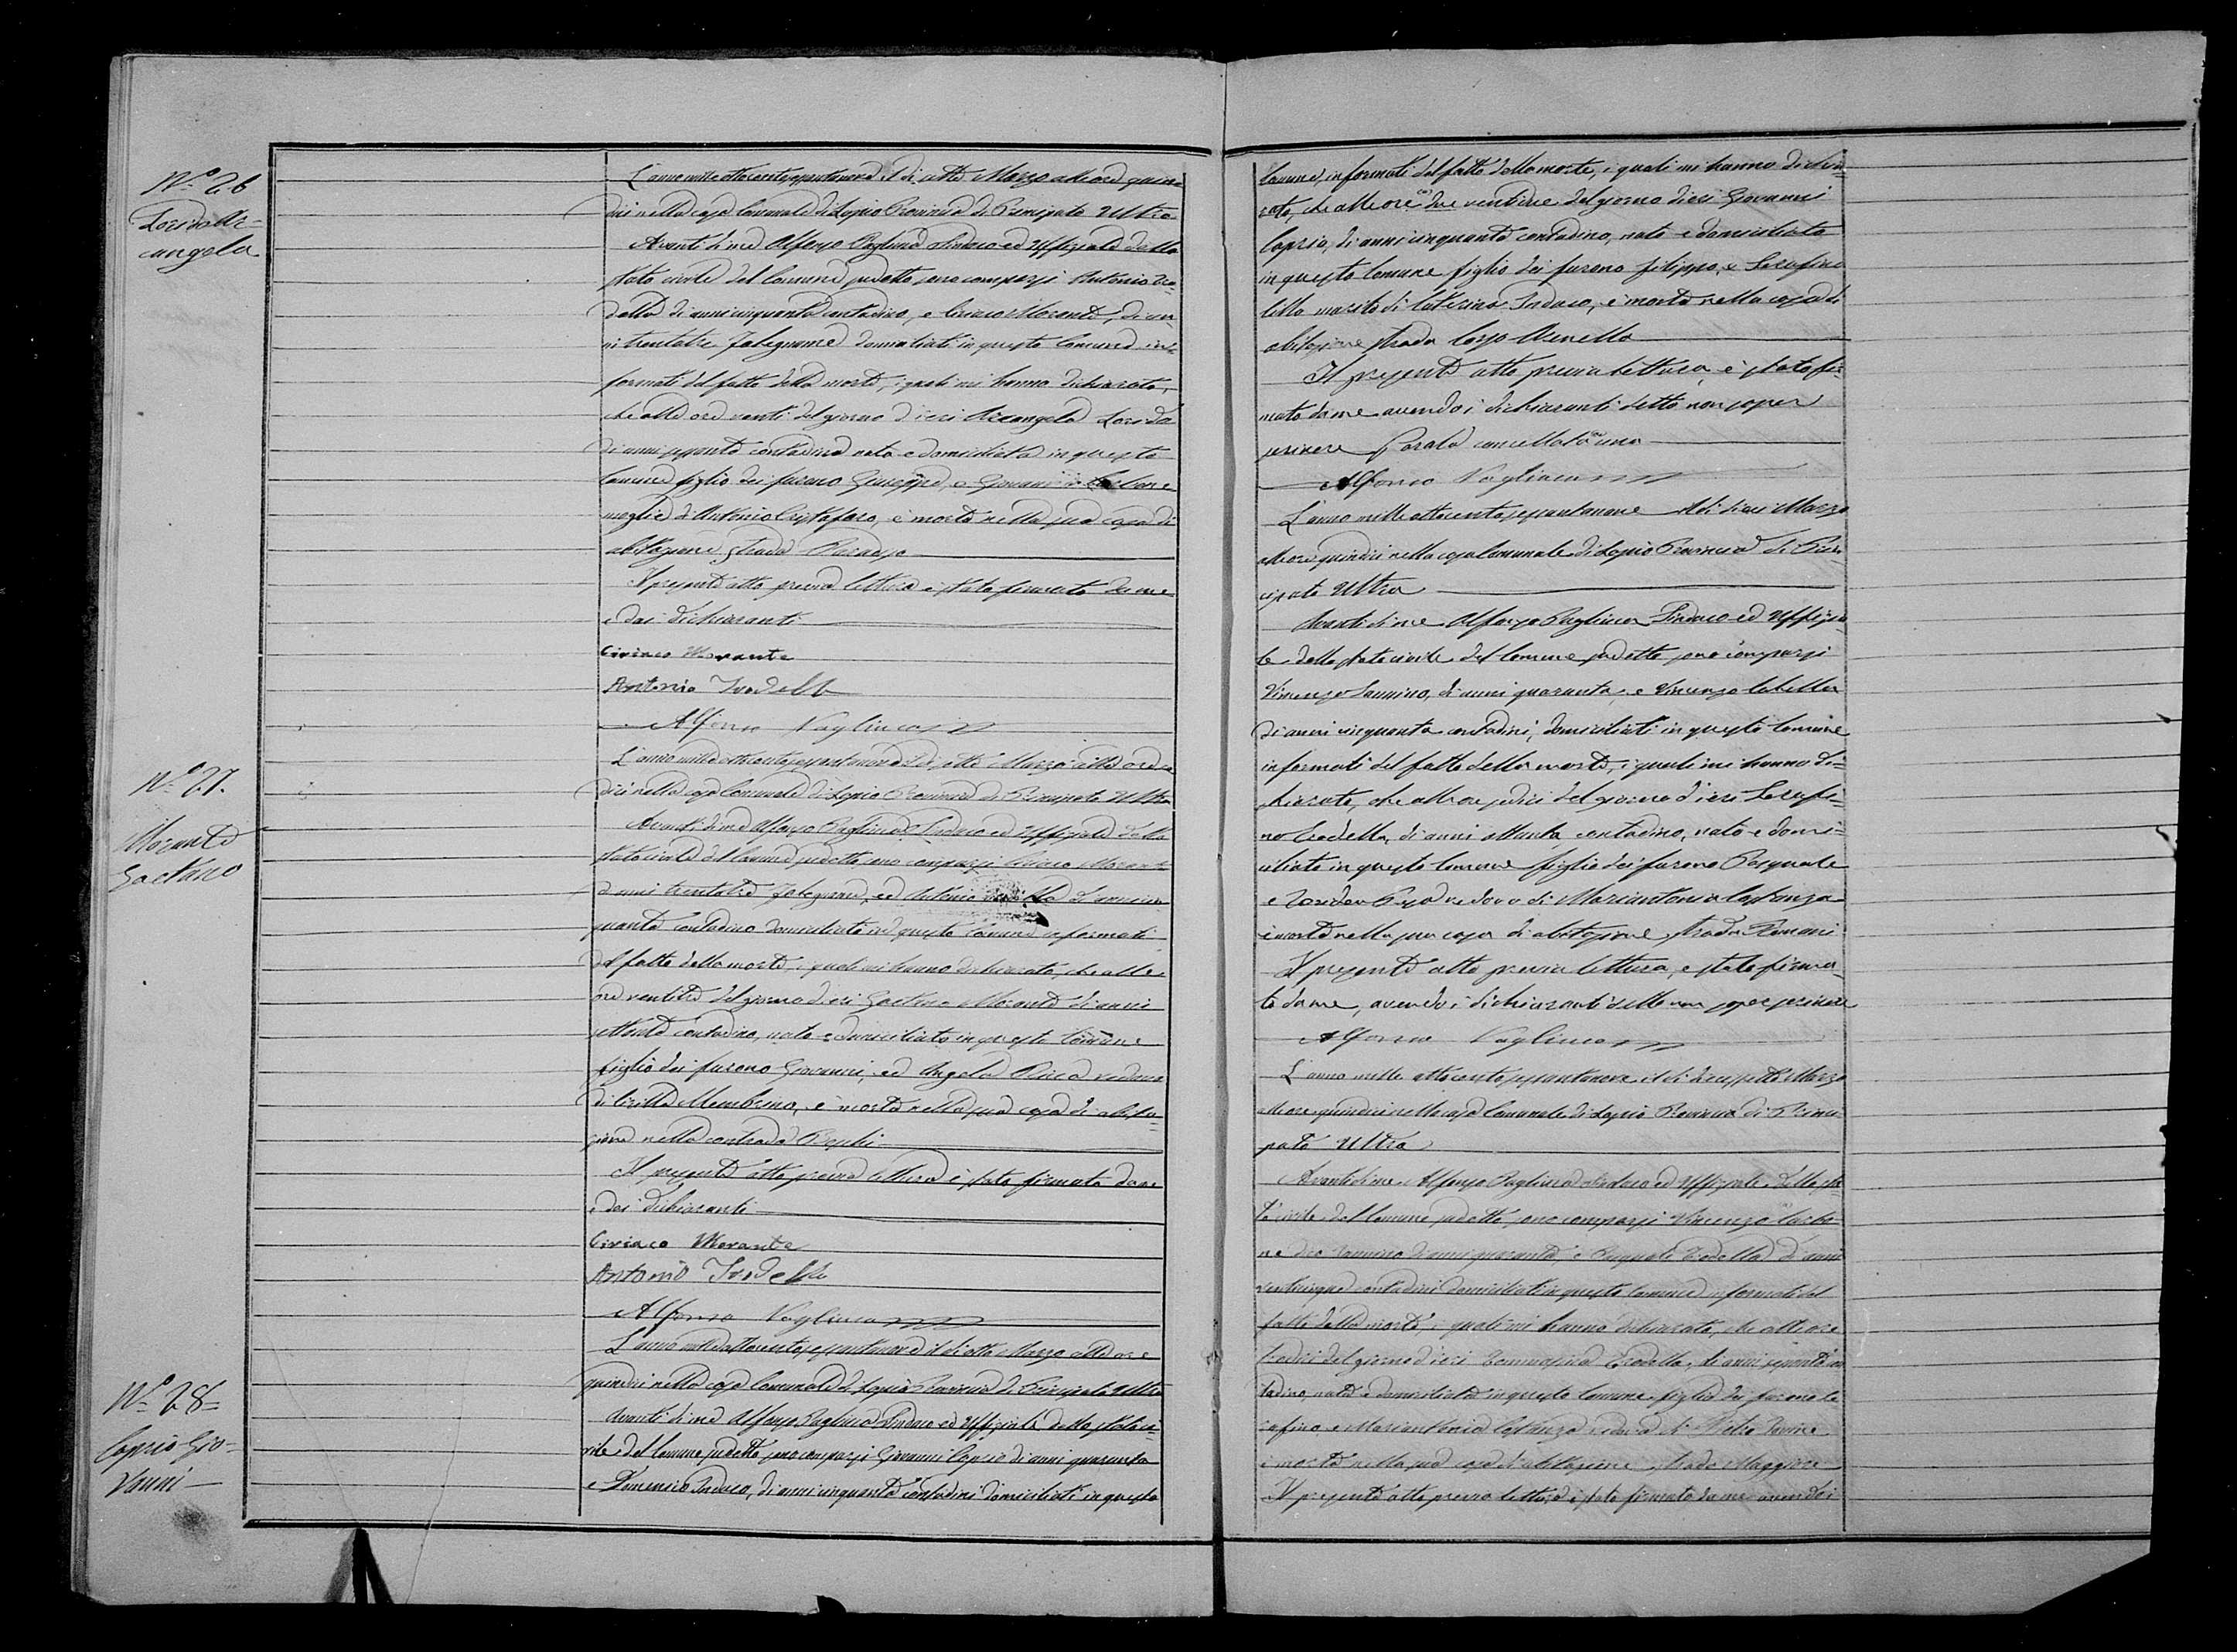 N.° 26
Lorido Ar=
cangela
L'anno mille ottocentosessantanove il dì otto Marzo alle ore quin=
dici nella casa Comunale di Lapio Provincia di Principato Ultra
Avanti di me Alfonso Pagliuca Sindaco ed Uffiziale dello
stato civile del Comune sudetto sono comparsi Antonio Tro=
della di anni cinquanta contadino, e Ciriaco Morante, di an=
ni trentatre falegname domiciliati in questo Comune in=
formati del fatto della morte, i quali mi hanno dichiarato,
che alle ore venti del giorno d'ieri Arcangela Lorido
di anni sessanta contadina nata e domiciliata in questo
Comune figlia dei furono Giuseppe, e Giovanna Carbone
moglie di Antonio Cristofaro, è morta nella sua casa di
abitazione strada
Il presente atto previa lettura è stato firmato da me
e dai dichiaranti
Ciriaco Morante
Antonio Trodella
Alfonso Pagliuca
N.° 27.
Morante
Gaetano
L'anno mille ottocentosessantanove il dì otto Marzo alle ore
dici nella casa Comunale di Lapio Provincia di Principato Ultra
Avanti di me Alfonso Pagliuca Sindaco ed Uffiziale dello
stato civile del Comune sudetto sono comparsi Ciriaco Morante
di anni trentatre falegname, ed Antonio Trodella di anni cin
quanta contadino domiciliati in questo Comune informati
del fatto della morte, i quali mi hanno dichiarato, che alle
ore ventitre del giorno d'ieri Gaetano Morante di anni
settanta contadino, nato e domiciliato in questo Comune
figlio dei furono Giovanni, ed Angela vedovo
di Membrino, è morto nella sua casa di abita=
zione nella contrada
Il presente atto previa lettura è stato firmato da me
e dai dichiaranti
Ciriaco Morante
Antonio Trodella
Alfonso Pagliuca
N.° 28=
Caprio Gio=
vanni
L'anno mille ottocentosessantanove il dì otto Marzo alle ore
quindici nella casa Comunale di Lapio Provincia di Principato Ultra
Avanti di me Alfonso Pagliuca Sindaco ed Uffiziale dello stato ci=
vile del Comune sudetto sono comparsi Giovanni Caprio di anni quaranta
e Domenico Indaco, di anni cinquanta contadini domiciliati in questo
Comune, informati del fatto della morte, i quali mi hanno dichia=
rato, che alle ore due ventidue del giorno d'ieri Giovanni
Caprio, di anni cinquanta contadino, nato e domiciliato
in questo Comune figlio dei furono Filippo, e Serafina
marito di Caterina Indaco, è morto nella casa di
abitazione strada Corso
Il presente atto previa lettura, è stato fir=
mato da me avendo i dichiaranti detto non saper
scrivere Parola cancellata una
Alfonso Pagliuca
L'anno mille ottocentosessantanove il dì dieci Marzo
alle ore quindici nella casa Comunale di Lapio Provincia di Prin
cipato Ultra
Avanti di me Alfonso Pagliuca Sindaco ed Uffizia
le dello stato civile del Comune sudetto sono comparsi
Vincenzo Iannino, di anni quaranta, e Vincenzo
di anni cinquanta contadini, domiciliati in questo Comune
informati del fatto della morte, i quali mi hanno di=
chiarato, che alle ore sedici del giorno d'ieri Serafi=
no Trodella, di anni ottanta contadino, nato e domi=
ciliato in questo Comune figlio dei furono Pasquale
e vedovo di Mariantonia Costanza
è morto nella sua casa di abitazione strada Romani
Il presente atto previa lettura, è stato firma=
to da me, avendo i dichiaranti detto non saper scrivere
Alfonso Pagliuca
L'anno mille ottocentosessantanove il dì diciassette Marzo
alle ore quindici nella casa Comunale di Lapio Provincia di Princi
pato Ultra
Avanti di me Alfonso Pagliuca Sindaco ed Uffiziale dello sta
to civile del Comune sudetto sono comparsi Vincenzo Carbo=
ne di anni quaranta, e Pasquale Trodella di anni
venticinque contadini domiciliati in questo Comune informati del
fatto della morte, i quali mi hanno dichiarato, che alle ore
tredici del giorno d'ieri Trodella, di anni con
tadina, nata e domiciliata in questo Comune figlia dei furono Se
rafino e Mariantonia Costanza vedova di Pietro
è morta nella sua casa di abitazione strada Maggiore
Il presente atto previa lettura è stato firmato da me avendo i